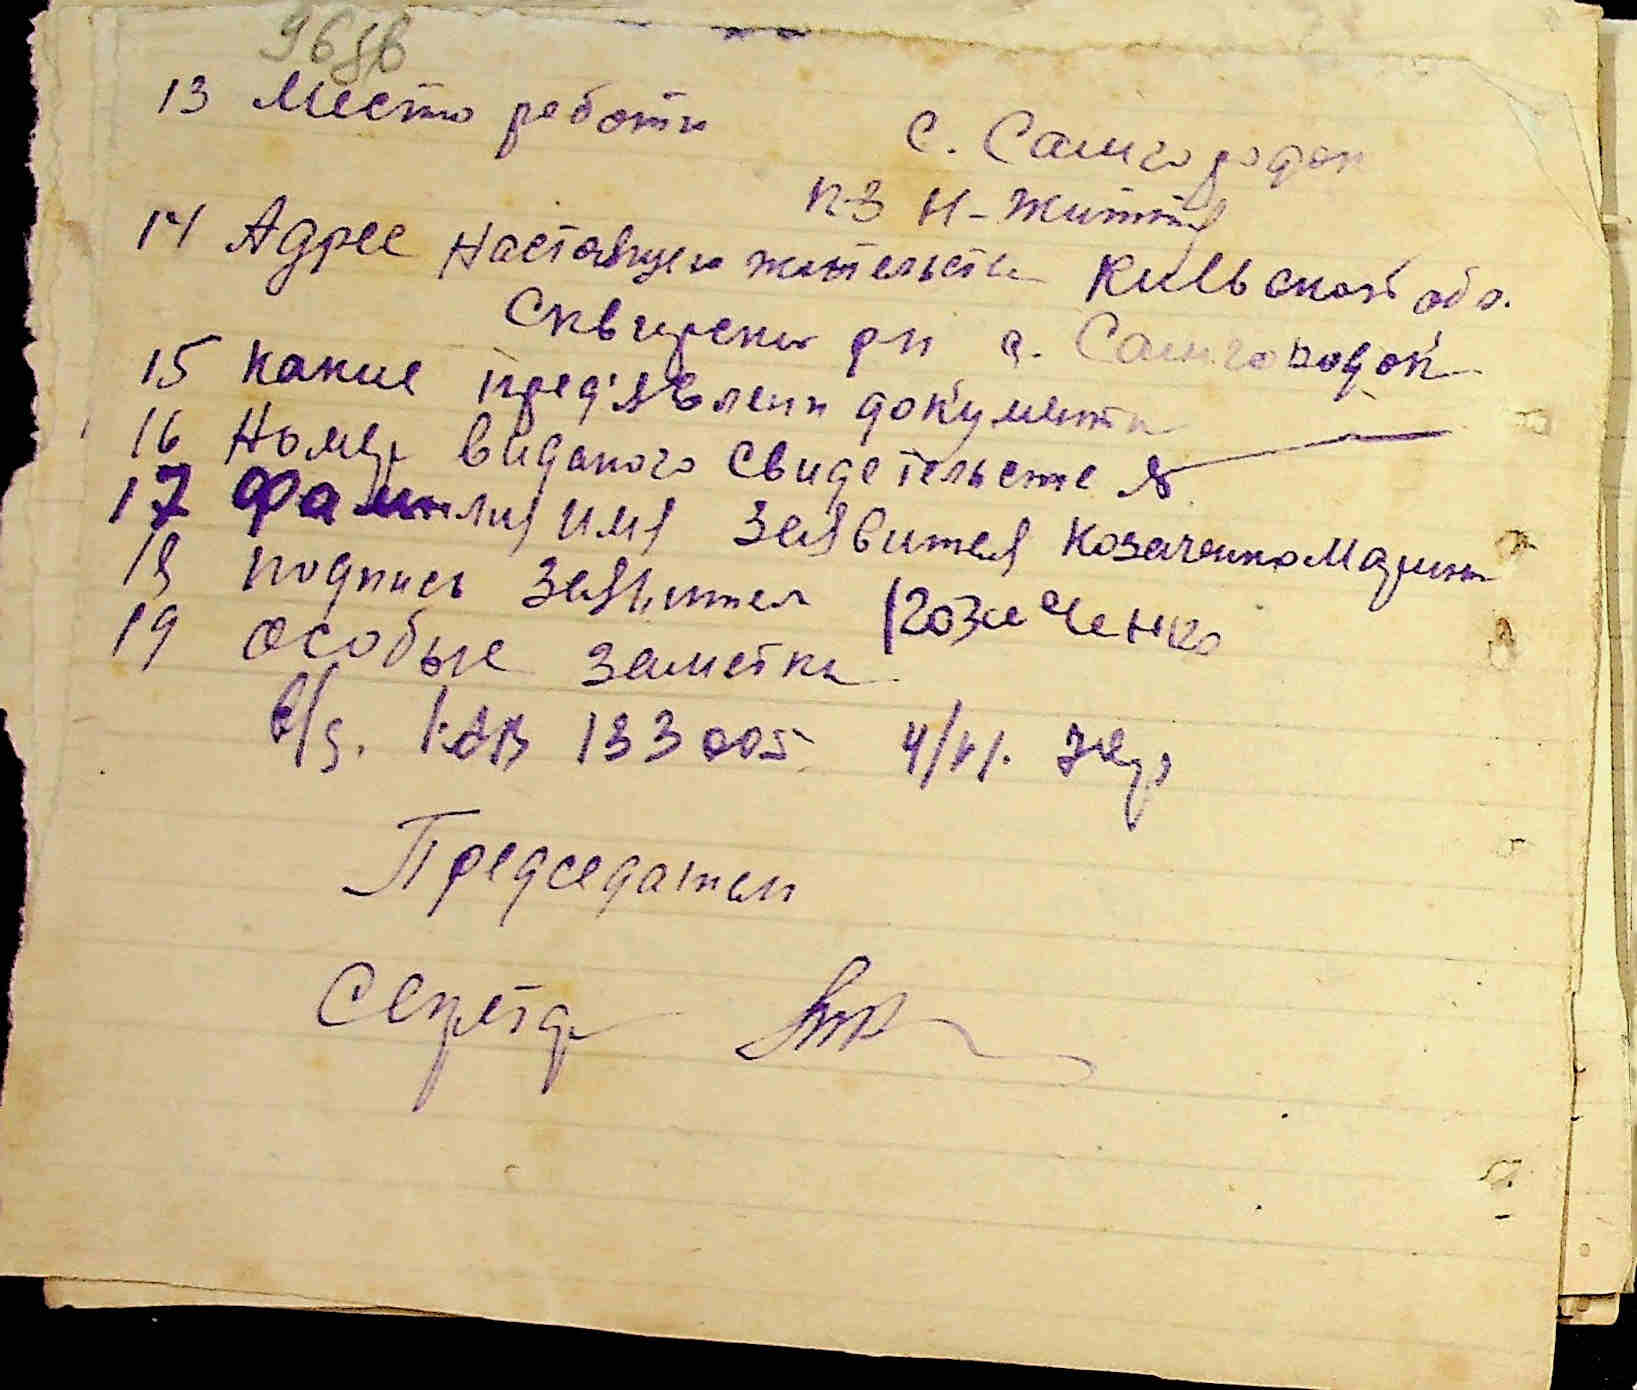 13 Место работи с. Самгородок
14 Адрес настоящего жительства Киевской обл.
Сквирски рн с. Самгородок
15 Какие пред'явлени документи
16 Номер виданого свидетельства №
17 Фамилия имя заявителя Козаченко Мария
18 подпись заявителя Козаченко
19 особые заметки
133005
Председатель
Секретар